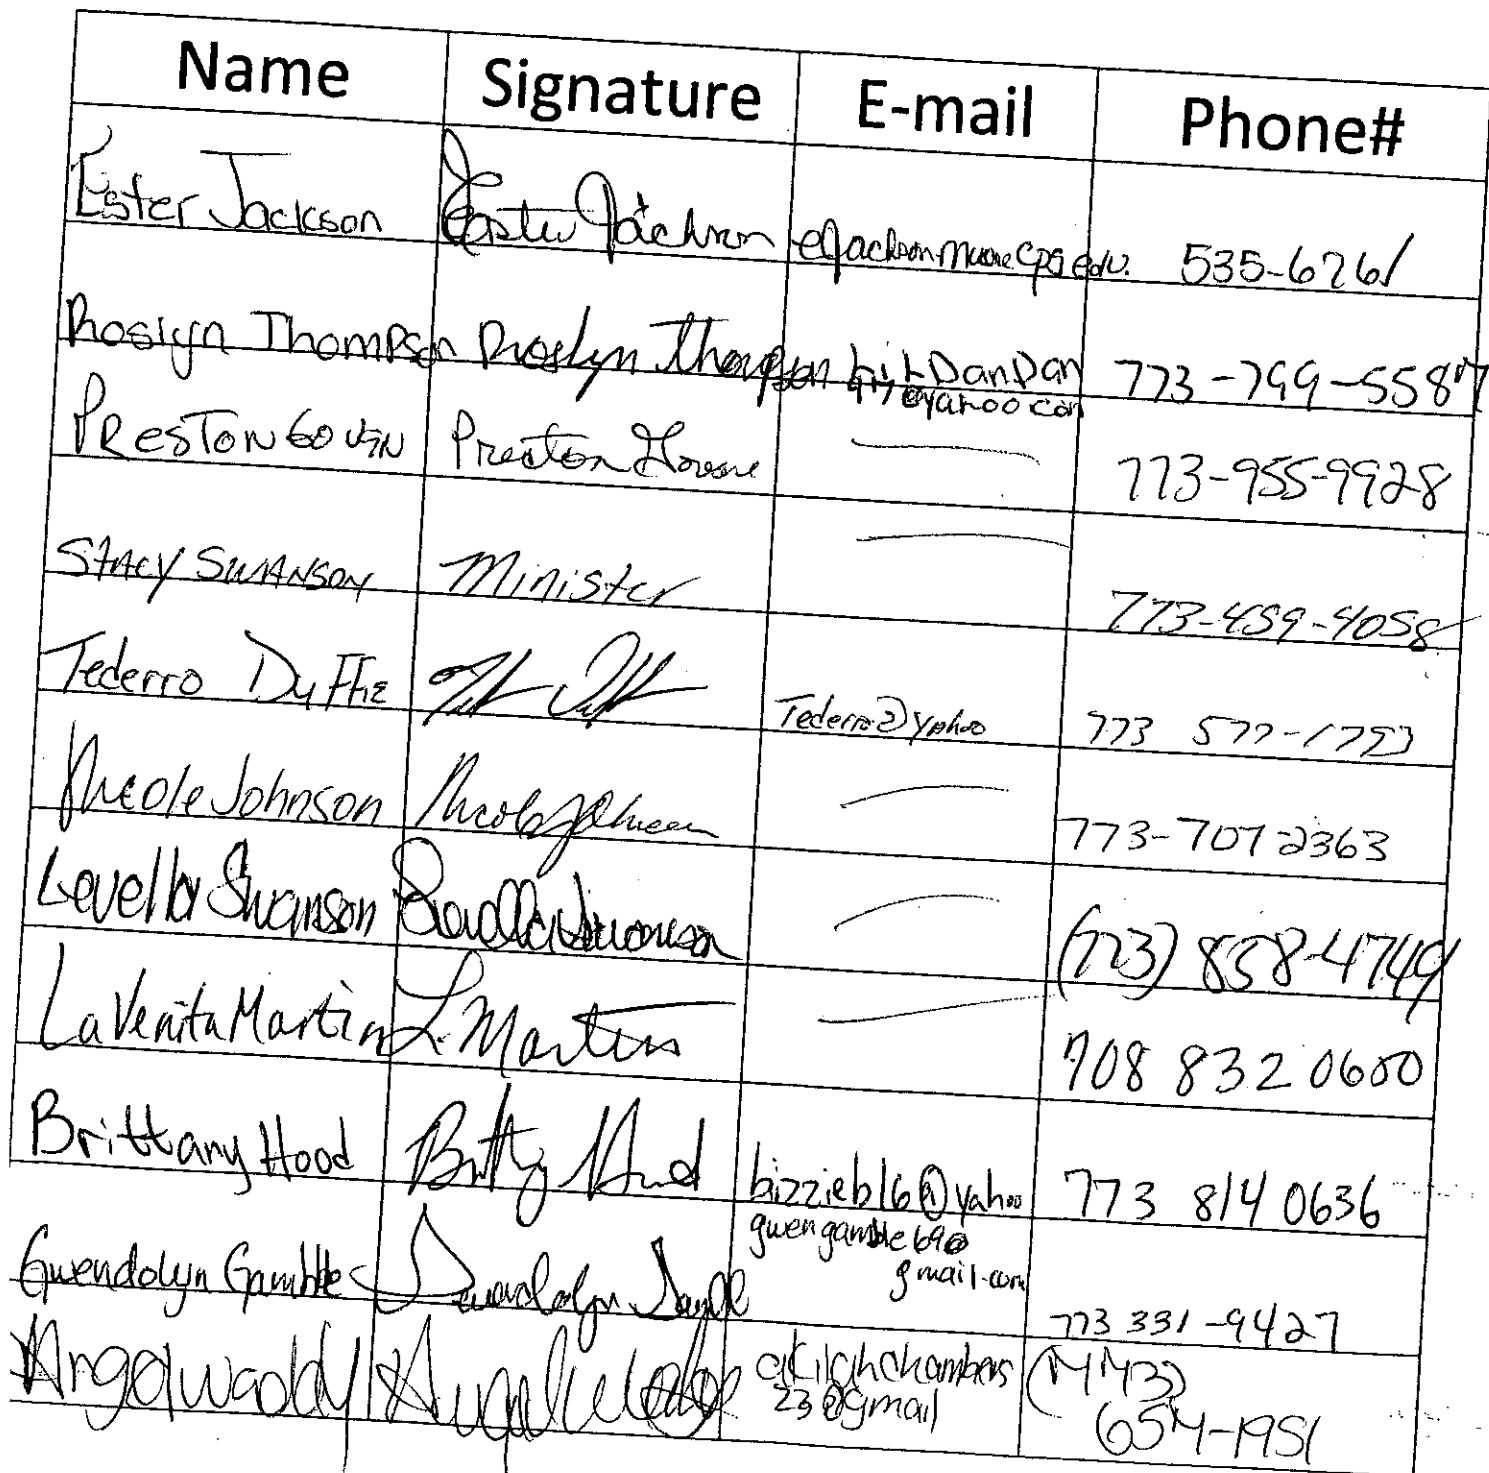 Name Signature E-mail Phone#
Ester Jackson Ester Jackson 535-6761
Roslyn Thompson Roslyn Thompson DanDan 773-799-5587
@yahoo.com
Preston Preston 773-955-9928
Stacy Swanson Minister 773-459-4058
Tederro Duffie Tederro@yahoo 773 577-1753
Nicole Johnson Nicole Johnson 773-707-2363
Levella Swanson Levella Swanson (773) 858-4749
LaVenita Martin L. Martin 708 832 0600
Brittany Hood Brittany Hood bizzieb16@yahoo 773 814 0636
gwengamble69@
gmail.com
Gwendolyn Gamble Gwendolyn Gamble 773 331-9427
Angel Waddy Angel akilahchambers (773)
23@gmail 654-1951